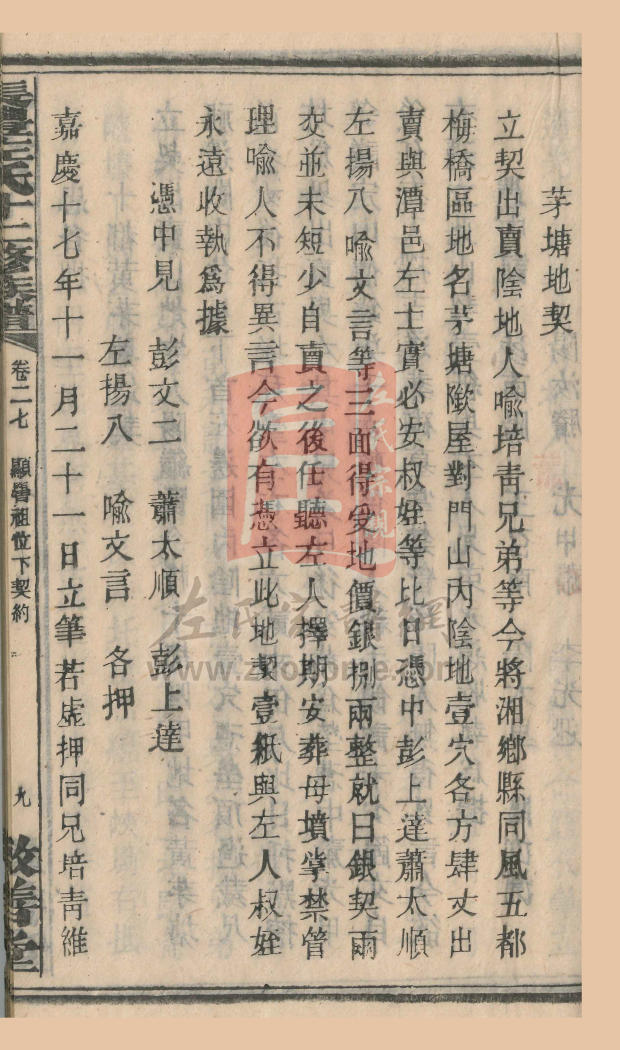 茅塘地契
立契出賣陰地人喻培靑兄弟等今將湘鄉縣同風五都
梅橋區地名茅塘㘓屋對門山內陰地壹穴各方肆丈出
賣與潭邑左士賓必安叔姪等比日憑中彭上達蕭太順
左揚八喻文言等三面得受地價銀捌兩整就日銀契兩
交並未短少自賣之後任聽左人擇期安葬母墳掌禁管
理喻人不得異言今欲有憑立此地契壹紙與左人叔姪
永遠收執爲據
憑中見 彭文二 蕭太順 彭上達
左揚八 喻文言 各押
嘉慶十七年十一月二十一日立筆若虛押同兄培靑維
左氏十二修族譜
卷二七 顯醫祖位下契約
九
敦善堂
左氏宗親
左氏譜書網
www.zuohome.com